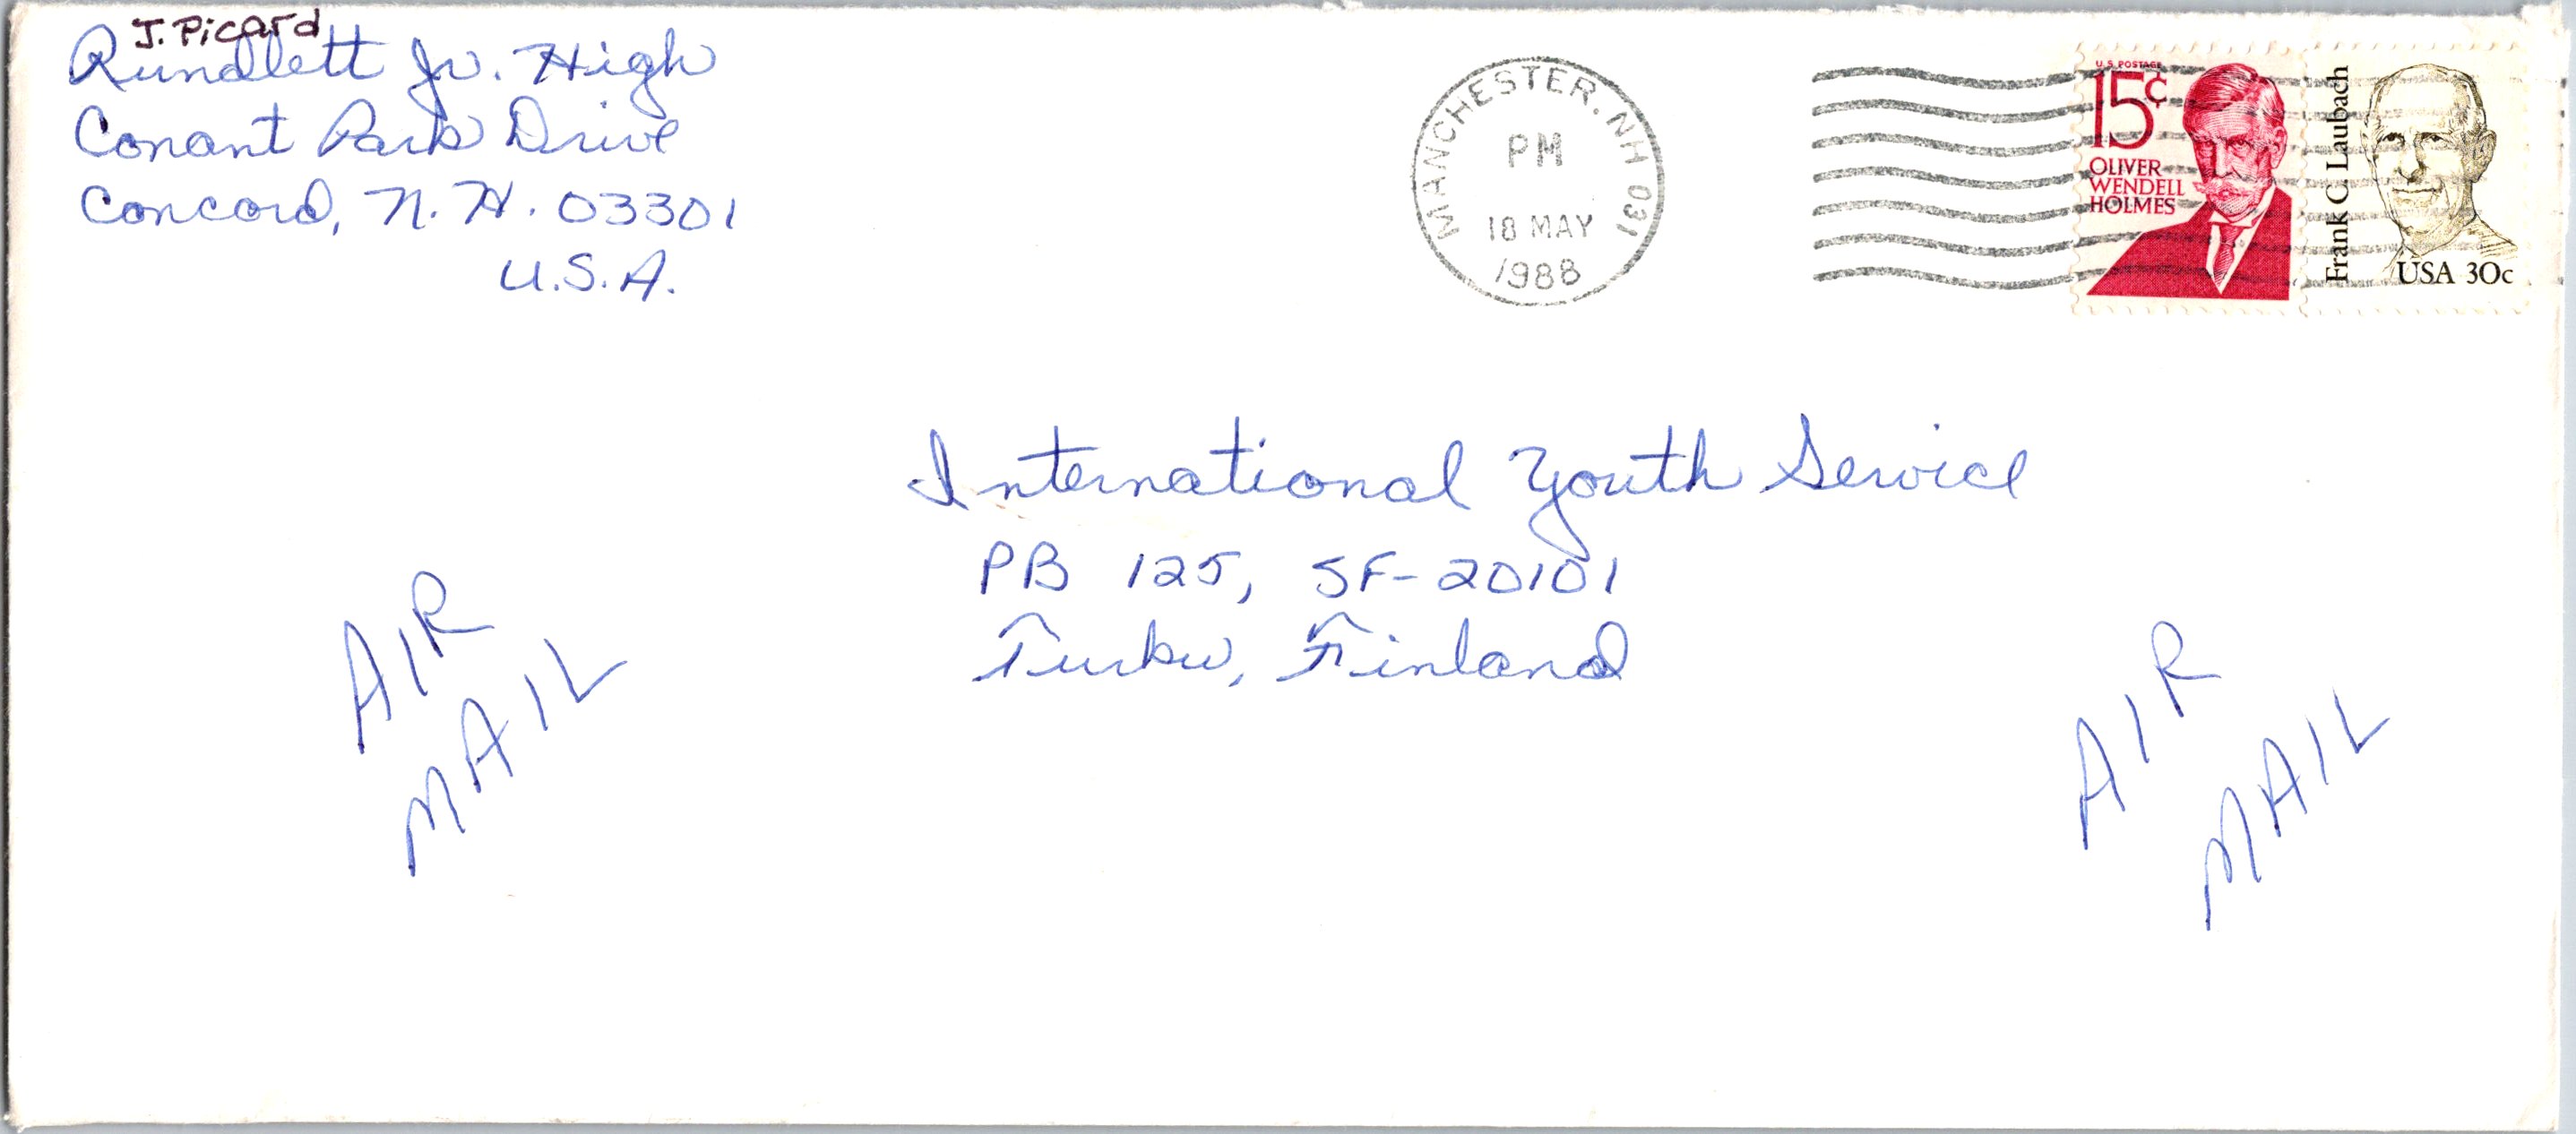 J. Picard
Rundlett Jr. High
Conant Park Drive
Concord, N.H. 03301
U.S.A.
MANCHESTER, NH 031
PM
18 MAY
1988
U.S. POSTAGE
15¢
OLIVER
WENDELL
HOLMES
Frank C Laubach
USA 30c
International Youth Service
PB 125, SF-20101
Turku, Finland
AIR
MAIL
AIR
MAIL